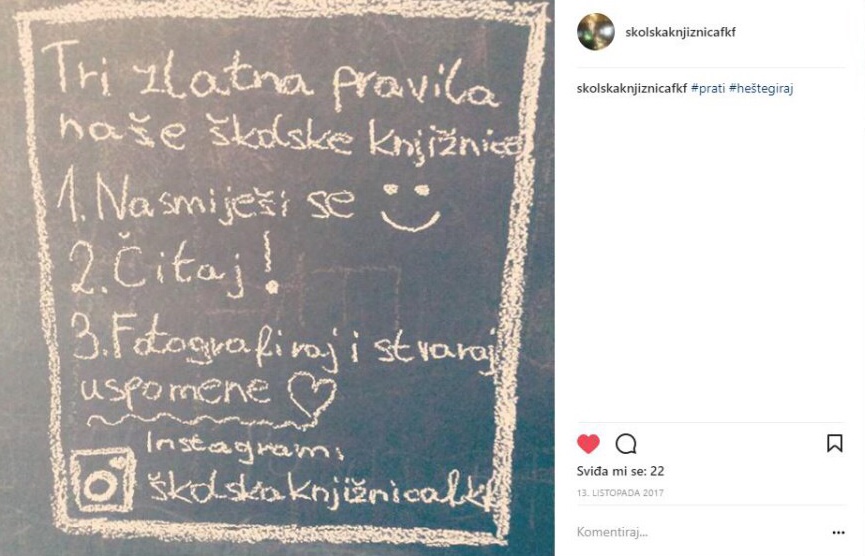 Tri zlatna pravila
naše školske knjižnice
1. Nasmiješi se
2. Čitaj!
3. Fotografiraj i stvaraj
uspomene
Instagram:
školskaknjižnicafkf
skolskaknjiznicafkf
skolskaknjiznicafkf #prati #heštegiraj
Sviđa mi se: 22
13. LISTOPADA 2017
Komentiraj...